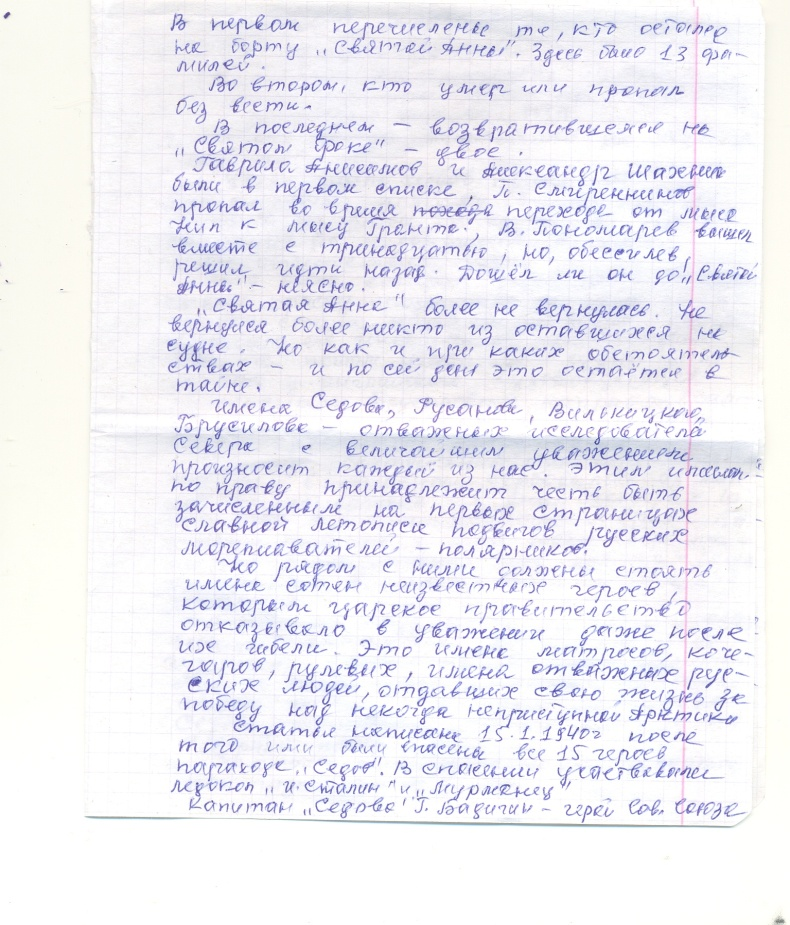 В первом перечислены те, кто остался
на борту „Святой Анны". Здесь было 13 фа-
милей.
Во втором, кто умер или пропал
без вести.
В последнем – возвратившемся на
„Святом Фоке" – двое.
Гаврила Анисимов и Александр Шахнин
были в первом списке, П. Смиренников
пропал во время похода перехода от мыса
Нил к мысу Гранта., В. Пономарев вышел
вместе с тринадцатью, но, обессилев,
решил идти назад. Дошёл ли он до „Святой
Анны" – неясно.
„Святая Анна" более не вернулась. Не
вернулся более никто из оставшихся на
судне. Но как и при каких обстоятель
ствах – и по сей день это остаётся в
тайне.
Имена Седова, Русанова, Вилькицкого,
Брусилова – отважных исследователей
Севера с величайшим уважением
произносит каждый из нас. Этим именам
по праву принадлежит честь быть
зачисленным на первых страницах
славной летописи подвигов русских
мореплавателей – полярников.
Но рядом с ними должны стоять
имена сотен неизвестных героев,
которым царское правительство
отказывало в уважении даже после
их гибели. Это имена матросов, коче-
гаров, рулевых, имена отважных рус-
ских людей, отдавших свою жизнь за
победу над некогда неприступной Арктики
Статья написана 15.1.1940г после
того ими были спасены все 15 героев
парохода „Седов". В спасении участвовали
ледокол „И. Сталин" и „Мурманец"
Капитан „Седова" Г. Бадигин – герой Сов. Союза